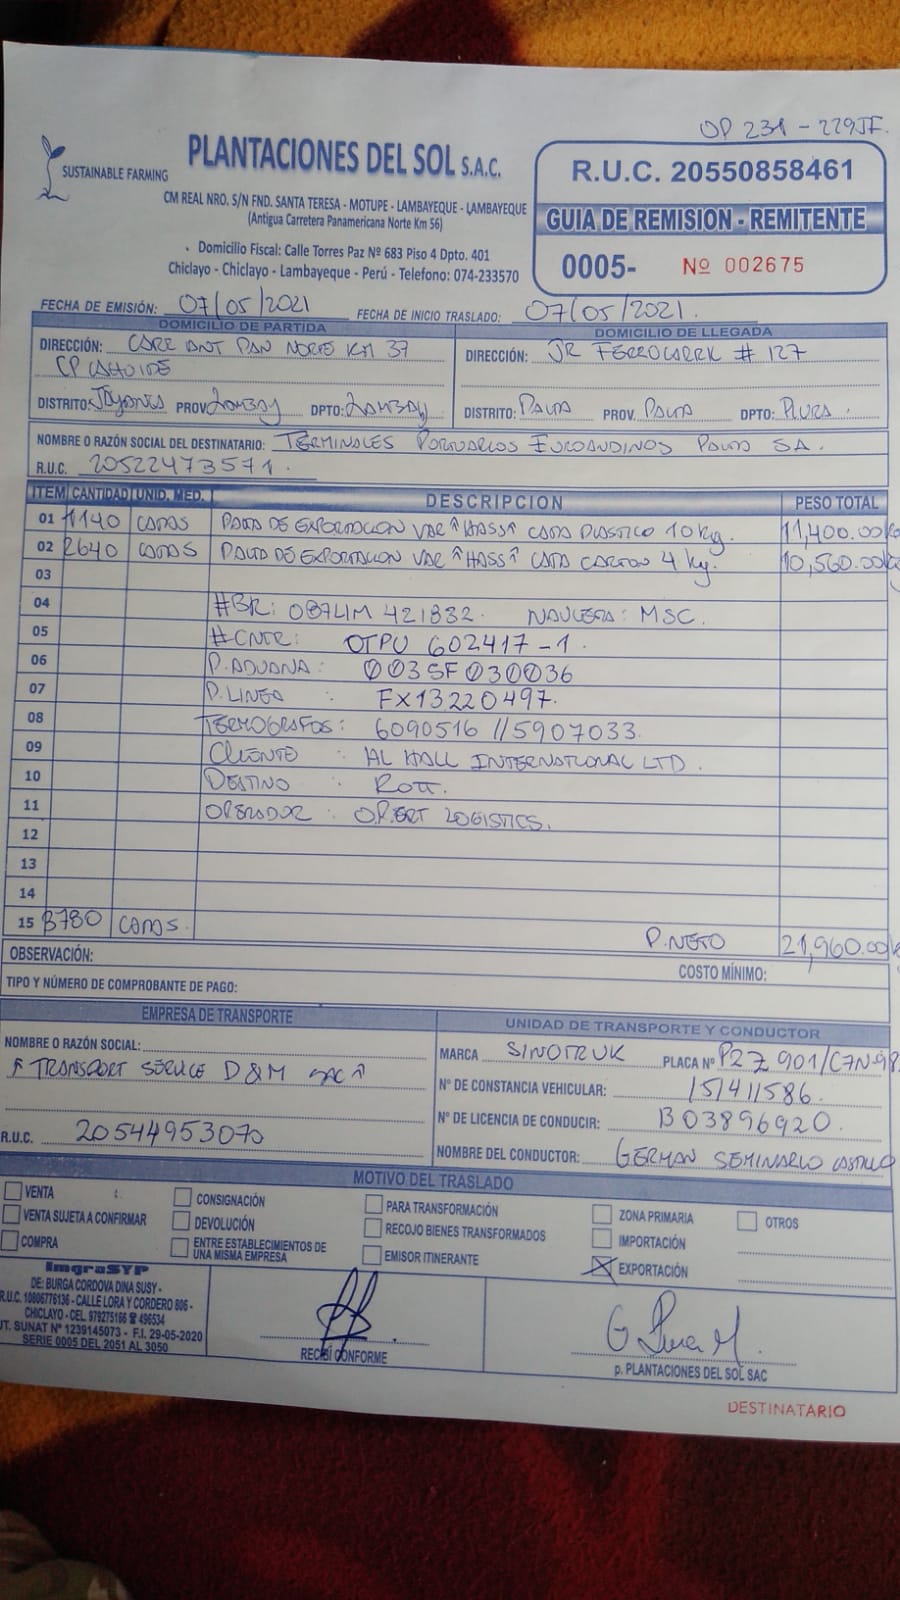 OP 231 - 229JF.
SUSTAINABLE FARMING
PLANTACIONES DEL SOL S.A.C.
CM REAL NRO. S/N FND. SANTA TERESA - MOTUPE - LAMBAYEQUE - LAMBAYEQUE
(Antigua Carretera Panamericana Norte Km 56)
Domicilio Fiscal: Calle Torres Paz Nº 683 Piso 4 Dpto. 401
Chiclayo - Chiclayo - Lambayeque - Perú - Telefono: 074-233570
R.U.C. 20550858461
GUIA DE REMISION - REMITENTE
0005- Nº 002675
FECHA DE EMISIÓN: 07/05/2021 FECHA DE INICIO TRASLADO: 07/05/2021.
DOMICILIO DE PARTIDA
DIRECCIÓN: CARR ANT PAN NORTE KM 37
CP CAHUIDE
DISTRITO: PROV. DPTO:
DOMICILIO DE LLEGADA
DIRECCIÓN: JR FERROCARRK # 127
DISTRITO: PAITA PROV. PAITA DPTO: PIURA.
NOMBRE O RAZÓN SOCIAL DEL DESTINATARIO: TERMINALES PORTUARIOS EUROANDINOS PAITA SA.
R.U.C. 20522473571.
ITEM CANTIDAD UNID. MED. DESCRIPCION PESO TOTAL
01 1140 CAJAS PALTA DE EXPORTACION VAR "HASS" CAJA PLASTICO 10 kg. 11,400.00
02 2640 CAJAS PALTA DE EXPORTACION VAR "HASS" CAJA CARTON 4 kg. 10,560.00
03
04 #BK: 087LIM 421832. NAVIERA: MSC.
05 #CNTR: OTPU 602417-1.
06 P. ADUANA: 003SF030036
07 P. LINEA: FX13220497.
08 TERMOGRAFOS: 6090516 // 5907033.
09 CLIENTE: HL HALL INTERNATIONAL LTD.
10 DESTINO: ROTT.
11 OPERADOR: LOGISTICS.
12
13
14
15 3780 CAJAS. P. NETO 21,960.00
OBSERVACIÓN: COSTO MÍNIMO:
TIPO Y NÚMERO DE COMPROBANTE DE PAGO:
EMPRESA DE TRANSPORTE
NOMBRE O RAZÓN SOCIAL:
"TRANSPORT SERVICE D&M SAC"
R.U.C. 20544953070
UNIDAD DE TRANSPORTE Y CONDUCTOR
MARCA SINOTRUK PLACA Nº P2Z 901/C7N-98
Nº DE CONSTANCIA VEHICULAR: 151411586.
Nº DE LICENCIA DE CONDUCIR: B03896920.
NOMBRE DEL CONDUCTOR: GERMAN SEMINARIO CASTILLO
MOTIVO DEL TRASLADO
VENTA CONSIGNACIÓN PARA TRANSFORMACIÓN ZONA PRIMARIA OTROS
VENTA SUJETA A CONFIRMAR DEVOLUCIÓN RECOJO BIENES TRANSFORMADOS IMPORTACIÓN
COMPRA ENTRE ESTABLECIMIENTOS DE UNA MISMA EMPRESA EMISOR ITINERANTE EXPORTACIÓN
ImgraSYP
DE: BURGA CORDOVA DINA SUSY -
R.U.C. 10806776136 - CALLE LORA Y CORDERO 806 -
CHICLAYO - CEL. 979275166 ☎ 496534
UT. SUNAT Nº 1239145073 - F.I. 29-05-2020
SERIE 0005 DEL 2051 AL 3050
RECIBÍ CONFORME
p. PLANTACIONES DEL SOL SAC
DESTINATARIO